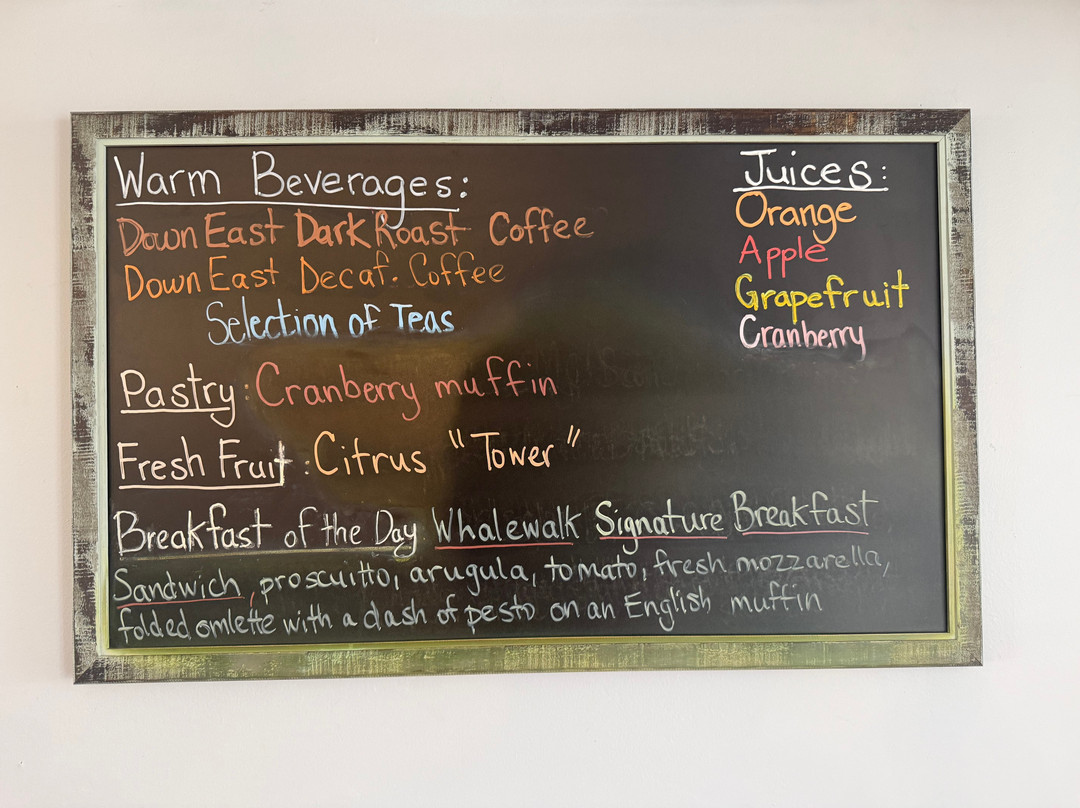 Warm Beverages:
Down East Dark Roast Coffee
Down East Decaf. Coffee
Selection of Teas
Juices:
Orange
Apple
Grapefruit
Cranberry
Pastry: Cranberry muffin
Fresh Fruit: Citrus "Tower"
Breakfast of the Day Whalewalk Signature Breakfast
Sandwich, proscuitto, arugula, tomato, fresh mozzarella,
folded omlette with a dash of pesto on an English muffin